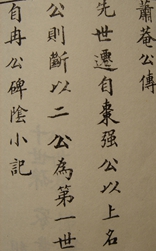 蕭菴公傳
先世遷自棗强公以上名
公則斷以二公為第一世
自冉公碑陰小記